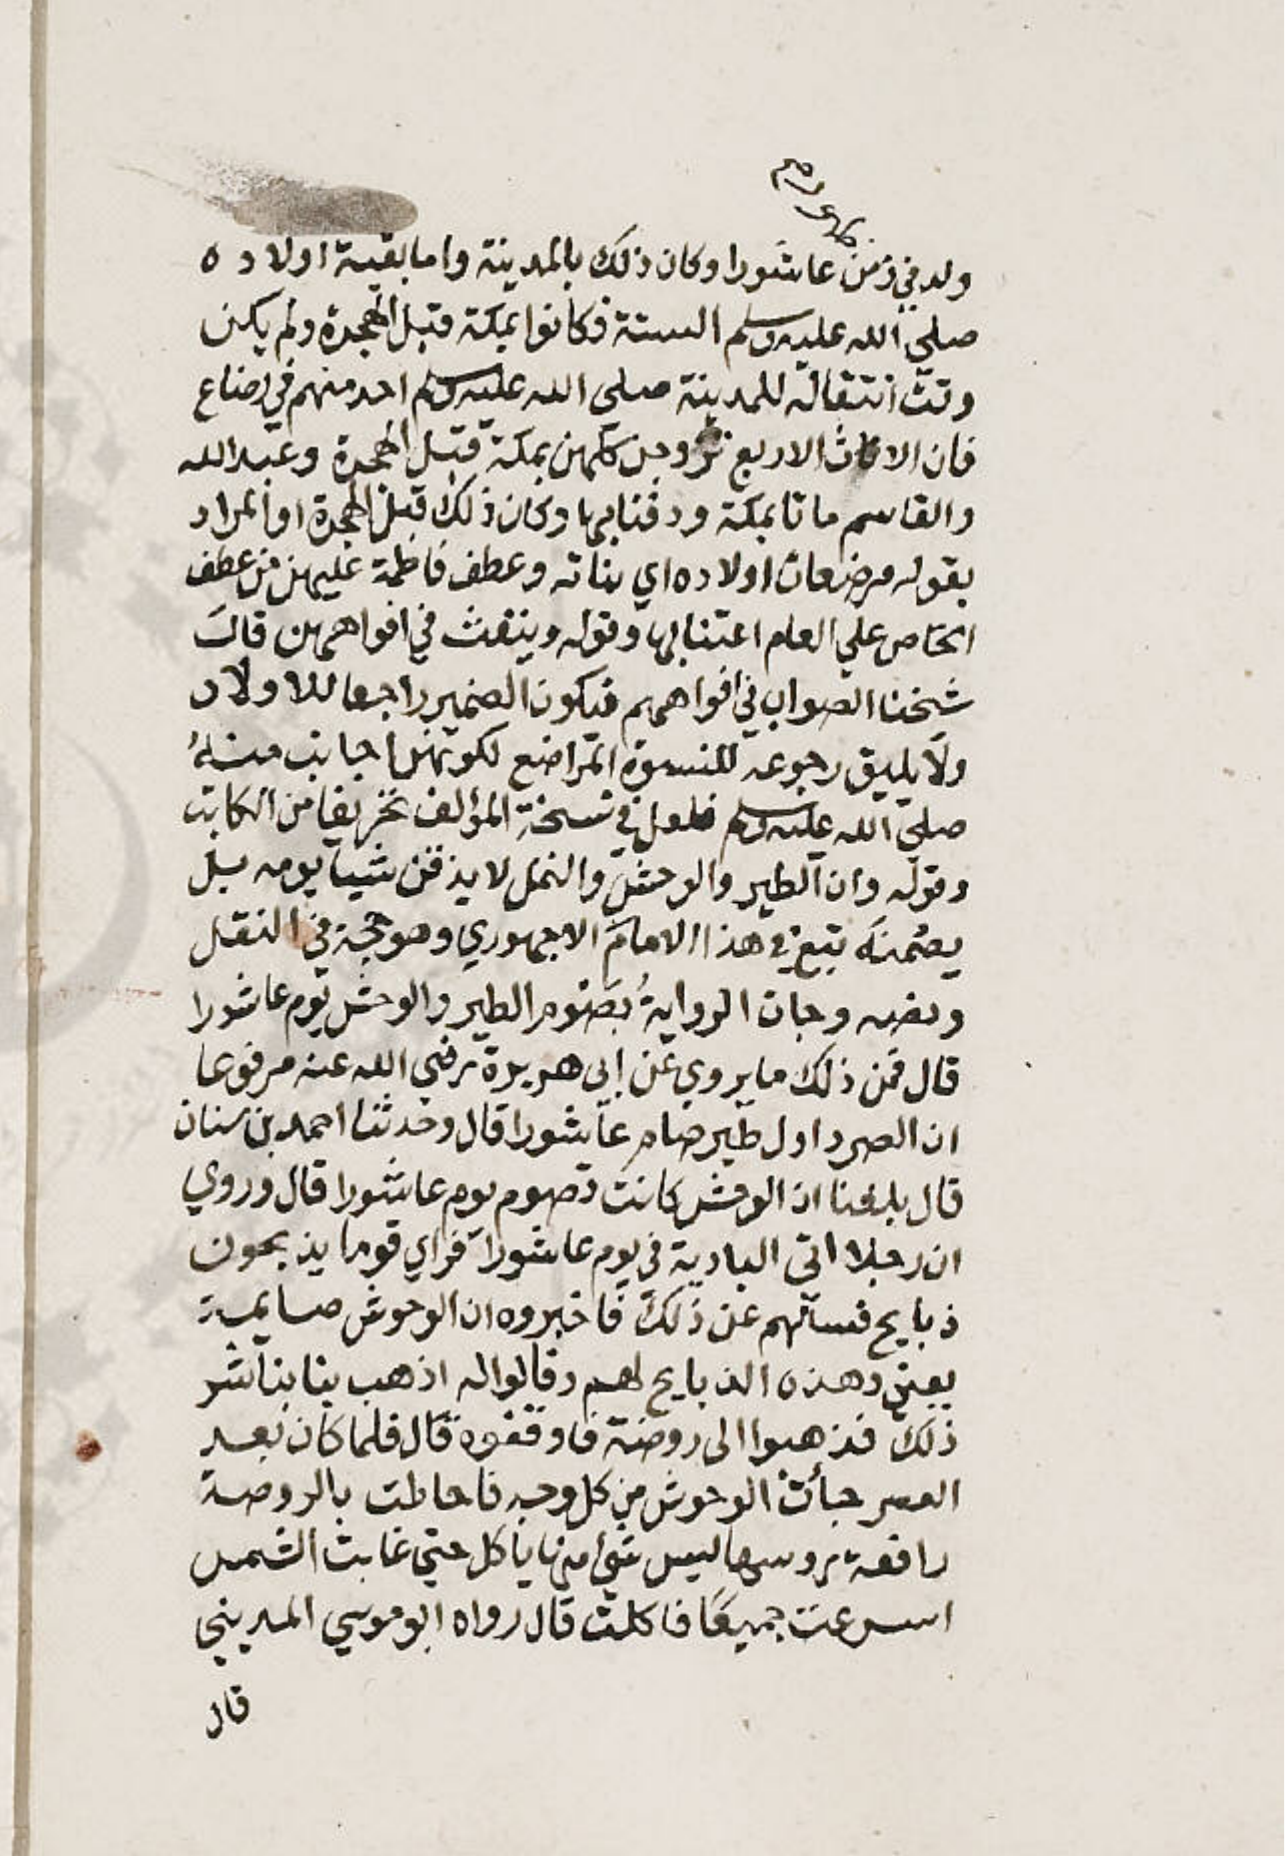 ولد في زمن عاشورا وكان ذلك بالمدينة واما بقية اولاده
صلي الله عليه وسلم الستة فكانوا بمكة قبل الهجرة ولم يكن
وقت انتقاله للمدينة صلي الله عليه وسلم احد منهم في رضاع
فان الاناث الاربع تزوجن كلهن بمكة قبل الهجرة وعبد الله
والقاسم ماتا بمكة ودفنا بها وكان ذلك قبل الهجرة او المراد
بقوله مرضعات اولاده اي بناته وعطف فاطمة عليهن من عطف
الخاص علي العام اعتنا بها وقوله وينفث في افواههن قال
شيخنا الصواب في افواههم فيكون الضمير راجعا للاولاد
ولا يليق رجوعه للنسوة المراضع لكونهن اجانب منه
صلي الله عليه وسلم فلعل في نسخة المؤلف تحريفا من الكاتب
وقوله وان الطير والوحش والنمل لا يذقن شيا يومه بل
يصمنه تبع في هذا الامام الاجهوري وهو حجة في النقل
ونصه وجات الرواية بصوم الطير والوحش يوم عاشورا
قال فمن ذلك ما يروي عن ابي هريرة رضي الله عنه مرفوعا
ان الصرد اول طير صام عاشورا قال وحدثنا احمد بن سنان
قال بلغنا ان الوحش كانت تصوم يوم عاشورا قال وروي
ان رجلا اتي البادية في يوم عاشورا فراي قوما يذبحون
ذبايح فسالهم عن ذلك فاخبروه ان الوحوش صايمة
يعني وهذه الذبايح لهم وقالوا له اذهب بنا
ذلك فذهبوا الى روضة فاوقفوه قال فلما كان بعد
العصر جبأت الوحوش من كل وجه فاحاطت بالروضة
رافعة روسها ليس شي منها ياكل حتي غابت الشمس
اسرعت جميعا فاكلت قال رواه ابو موسي المديني
قال